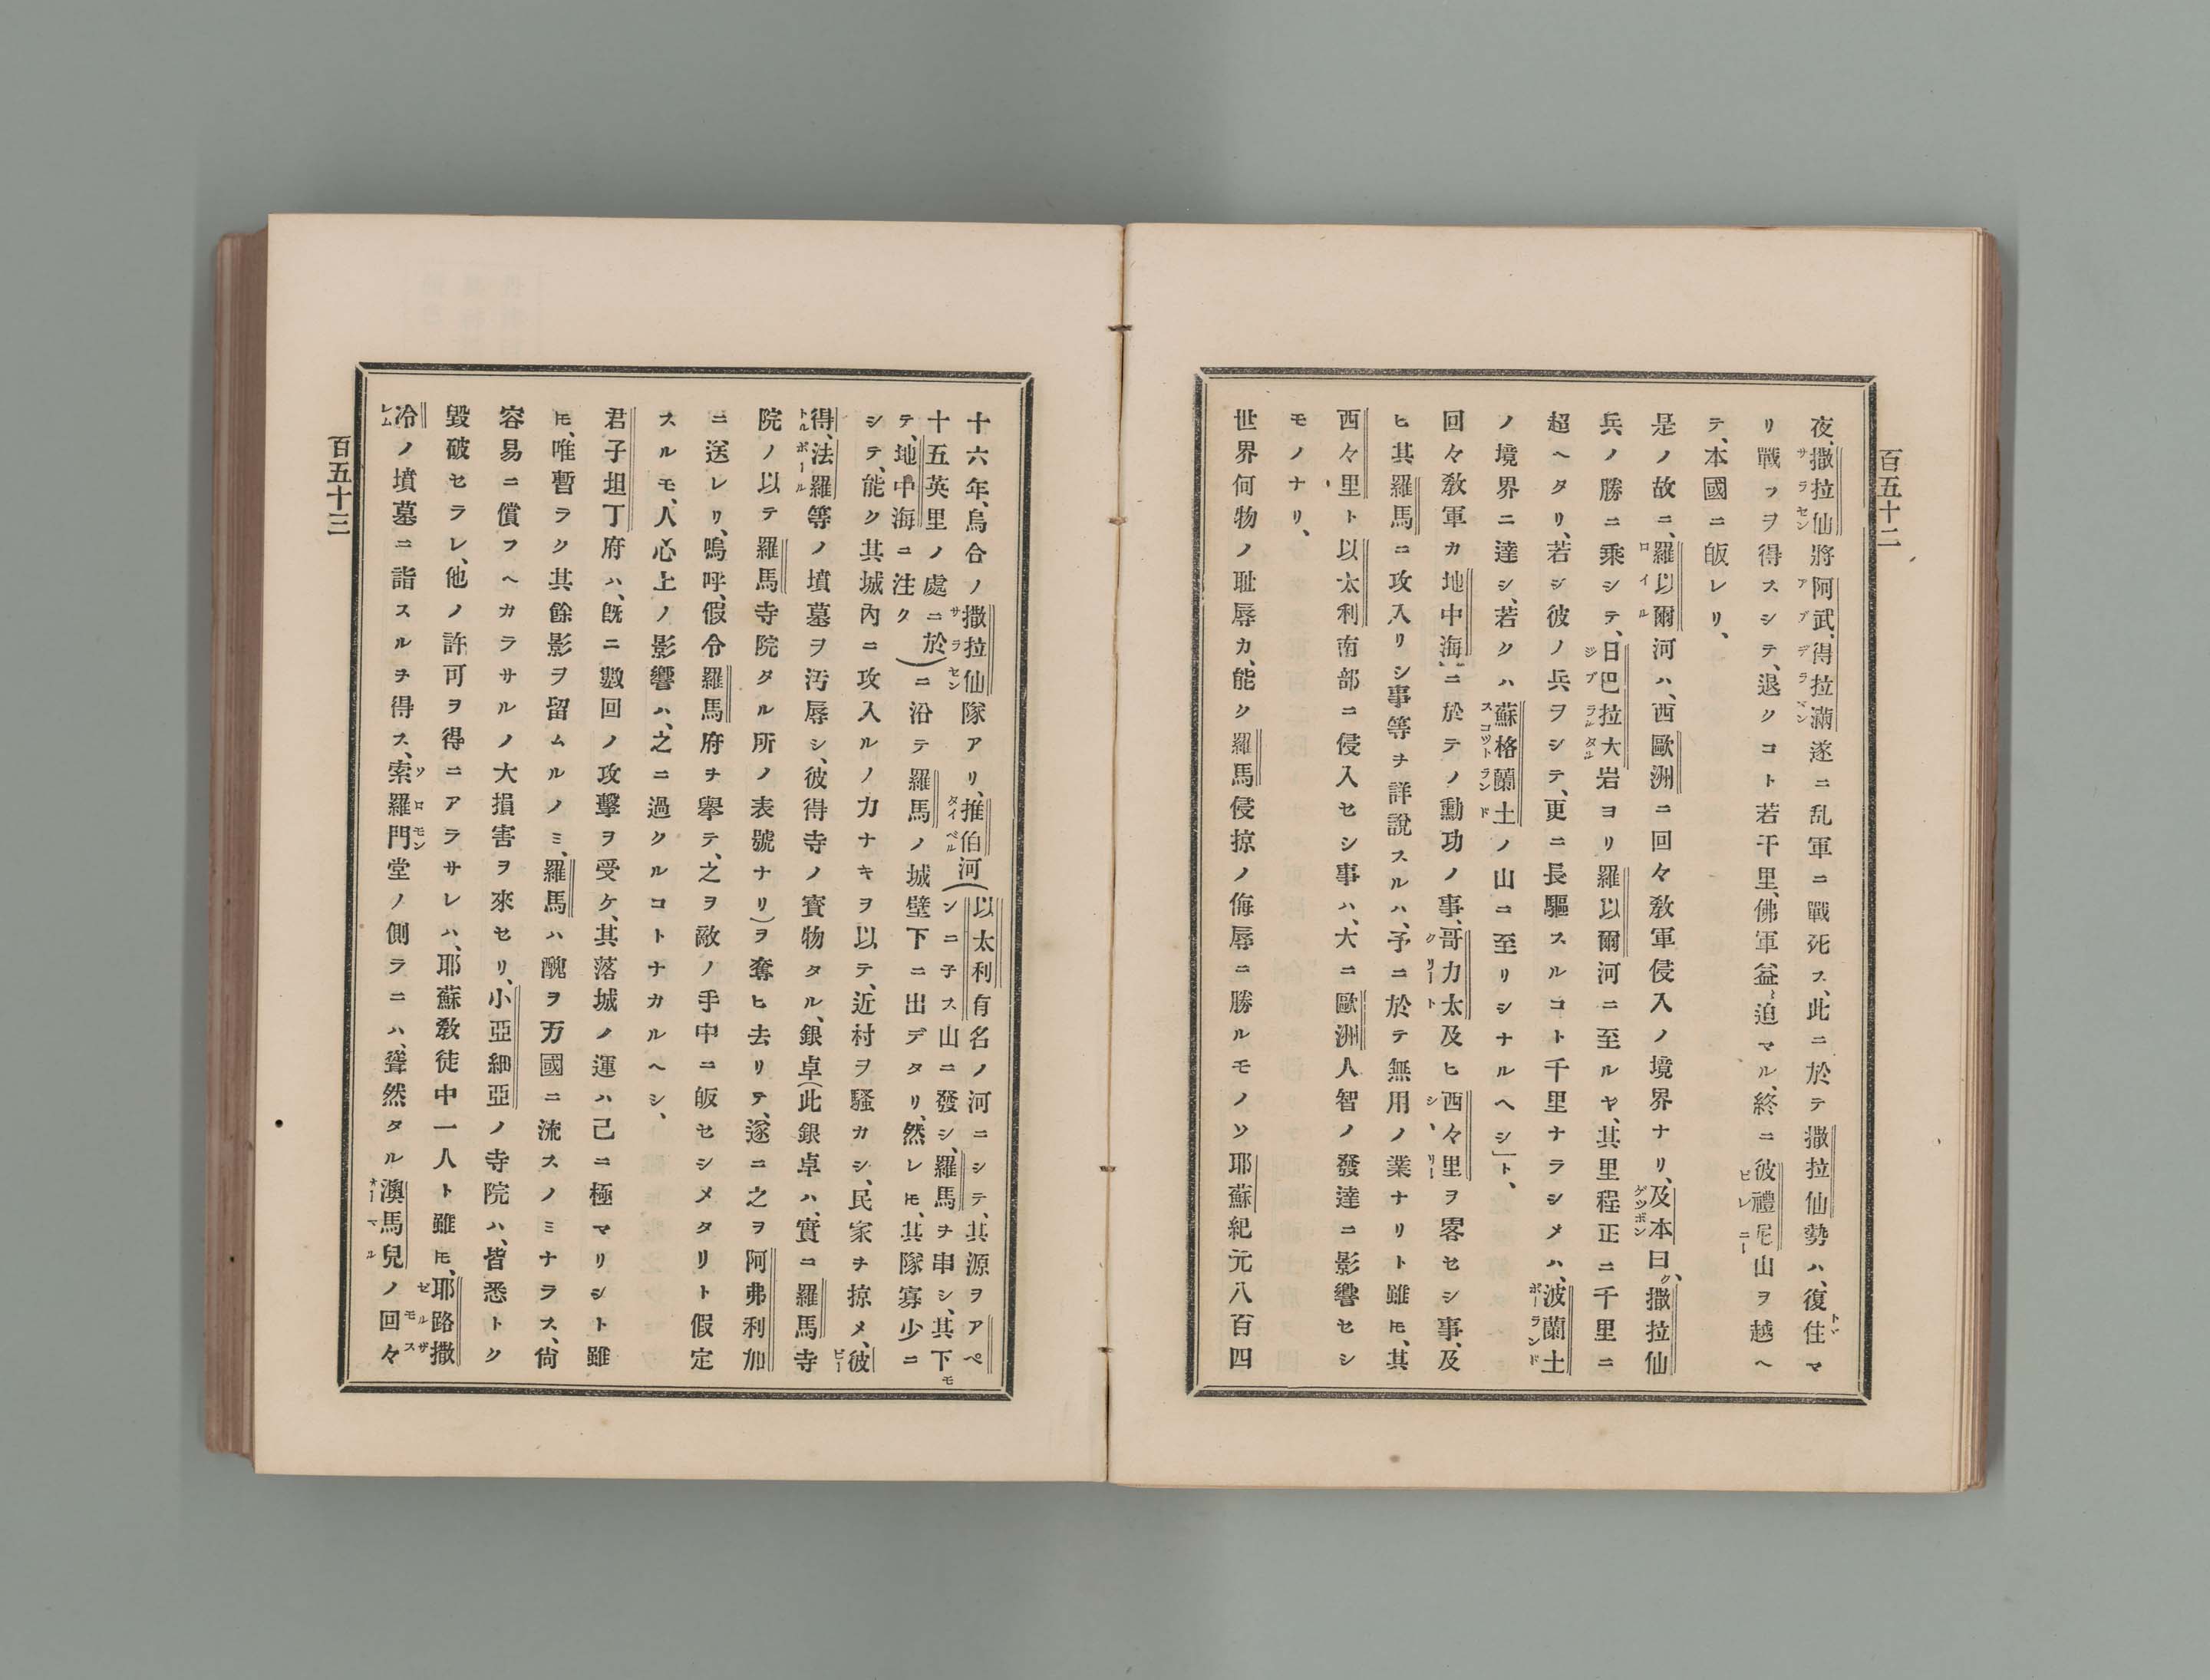 百五十二
夜、撒拉仙將阿武、得拉滿遂ニ乱軍ニ戰死ス、此ニ於テ撒拉仙勢ハ、復住マ
リ戰フヲ得スシテ、退クコト若干里、佛軍益〻迫マル、終ニ彼禮尼山ヲ越ヘ
テ、本國ニ皈レリ、
是ノ故ニ、羅以爾河ハ、西歐洲ニ回々敎軍侵入ノ境界ナリ、及本曰ク、撒拉仙
兵ノ勝ニ乘シテ、日巴拉大岩ヨリ羅以爾河ニ至ルヤ、其里程正ニ千里ニ
超ヘタリ、若シ彼ノ兵ヲシテ、更ニ長驅スルコト千里ナラシメハ、波蘭土
ノ境界ニ達シ、若クハ蘇格蘭土ノ山ニ至リシナルヘシ」ト、
回々敎軍カ地中海ニ於テノ勳功ノ事、哥力太及ヒ西々里ヲ畧セシ事、及
ヒ其羅馬ニ攻入リシ事等ヲ詳說スルハ、予ニ於テ無用ノ業ナリト雖𪜈、其
西々里ト以太利南部ニ侵入セシ事ハ、大ニ歐洲人智ノ發達ニ影響セシ
モノナリ、
世界何物ノ耻辱カ、能ク羅馬侵掠ノ侮辱ニ勝ルモノソ耶蘇紀元八百四
十六年、烏合ノ撒拉仙隊アリ、推伯河(以太利有名ノ河ニシテ、其源ヲアペ
ンニ子ス山ニ發シ、羅馬ヲ串シ、其下モ
十五英里ノ處ニ於
テ、地中海ニ注ク)ニ沿テ羅馬ノ城壁下ニ出デタリ、然レ𪜈、其隊寡少ニ
シテ、能ク其城內ニ攻入ルノ力ナキヲ以テ、近村ヲ騷カシ、民家ヲ掠メ、彼
得、法羅等ノ墳墓ヲ汚辱シ、彼得寺ノ寳物タル、銀卓(此銀卓ハ、實ニ羅馬寺
院ノ以テ羅馬寺院タル所ノ表號ナリ)ヲ奪ヒ去リテ、遂ニ之ヲ阿弗利加
ニ送レリ、嗚呼、假令羅馬府ヲ擧テ、之ヲ敵ノ手中ニ皈セシメタリト假定
スルモ、人心上ノ影響ハ、之ニ過クルコトナカルヘシ、
君子坦丁府ハ、旣ニ數回ノ攻擊ヲ受ケ、其落城ノ運ハ己ニ極マリシト雖
𪜈、唯暫ラク其餘影ヲ留ムルノミ、羅馬ハ醜ヲ万國ニ流スノミナラス、尙
容易ニ償フヘカラサルノ大損害ヲ來セリ、小亞細亞ノ寺院ハ、皆悉トク
毀破セラレ、他ノ許可ヲ得ニアラサレハ、耶蘇敎徒中一人ト雖𪜈、耶路撒
冷ノ墳墓ニ詣スルヲ得ス、索羅門堂ノ側ラニハ、聳然タル澳馬兒ノ回々
百五十三